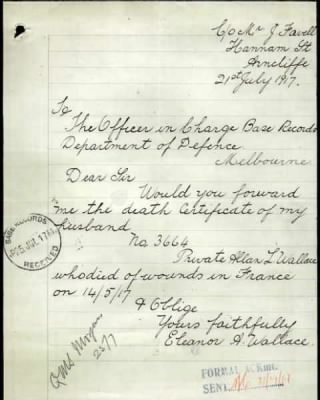 C/o Mr J. Favell
Hannam St
Arncliffe
21st July 1917.
To
The Officer in Charge Base Records
Department of Defence.
Melbourne
Dear Sir
Would you forward
me the death Certificate of my
husband
No 3664
Private Alan L Wallace
who died of wounds in France
on 14/5/17
& Oblige
Yours faithfully
Eleanor A. Wallace.
BASE RECORDS
RECEIVED
FORMAL ACKMT.
SENT